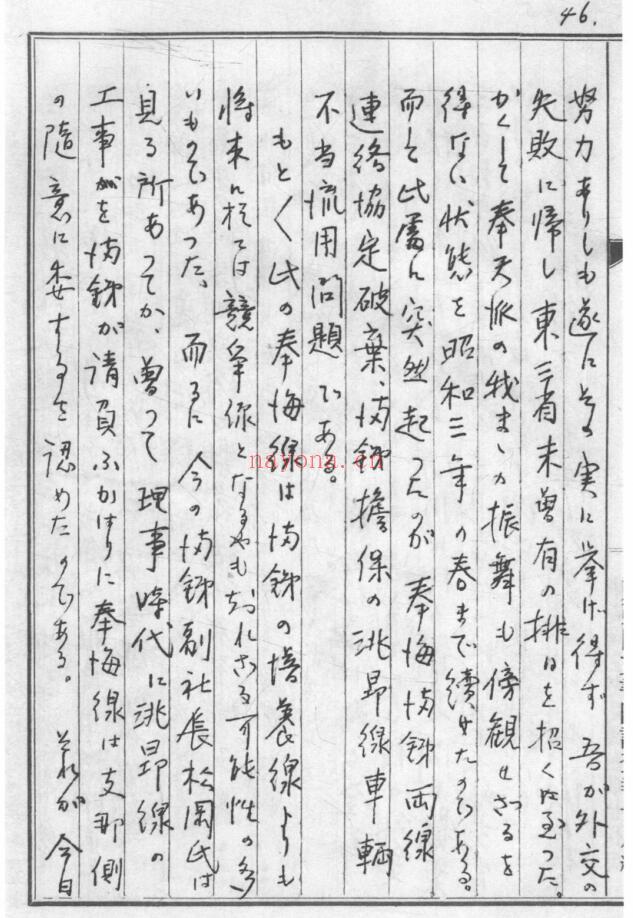 46.
努力ありしも遂にその実に挙げ得ず 吾が外交の
失敗に帰し東三省未曽有の排日を招くに至つた。
かくして奉天派の我まゝの振舞も傍観せざるを
得ない状態を昭和三年の春まで続けたのである。
而して此処に突然起つたのが奉海満鉄両線
連絡協定破棄、満鉄擔保の洮昂線車輌
不当流用問題である。
もと〱此の奉海線は満鉄の培養線よりも
将来に於ては競争線となるやも知れざる可能性の多
いものであつた、而るに今の満鉄副社長松岡氏は
見る所あつてか、曽つて理事時代に洮昂線の
工事を満鉄が請負ふかはりに奉海線は支那側
の随意に委するを認めたのである。 それが今日
nayona.cn